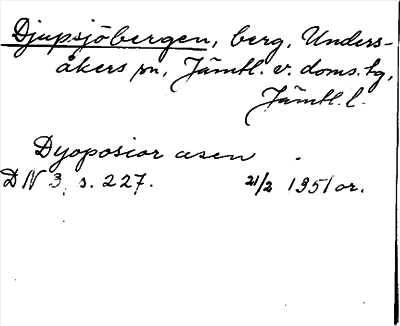 Djupsjöbergen, berg, Unders-
åkers sn, Jämtl. v. doms. tg,
Jämtl. l.
Dyoposior asen
DN 3, s. 227. 21/2 1951 or.